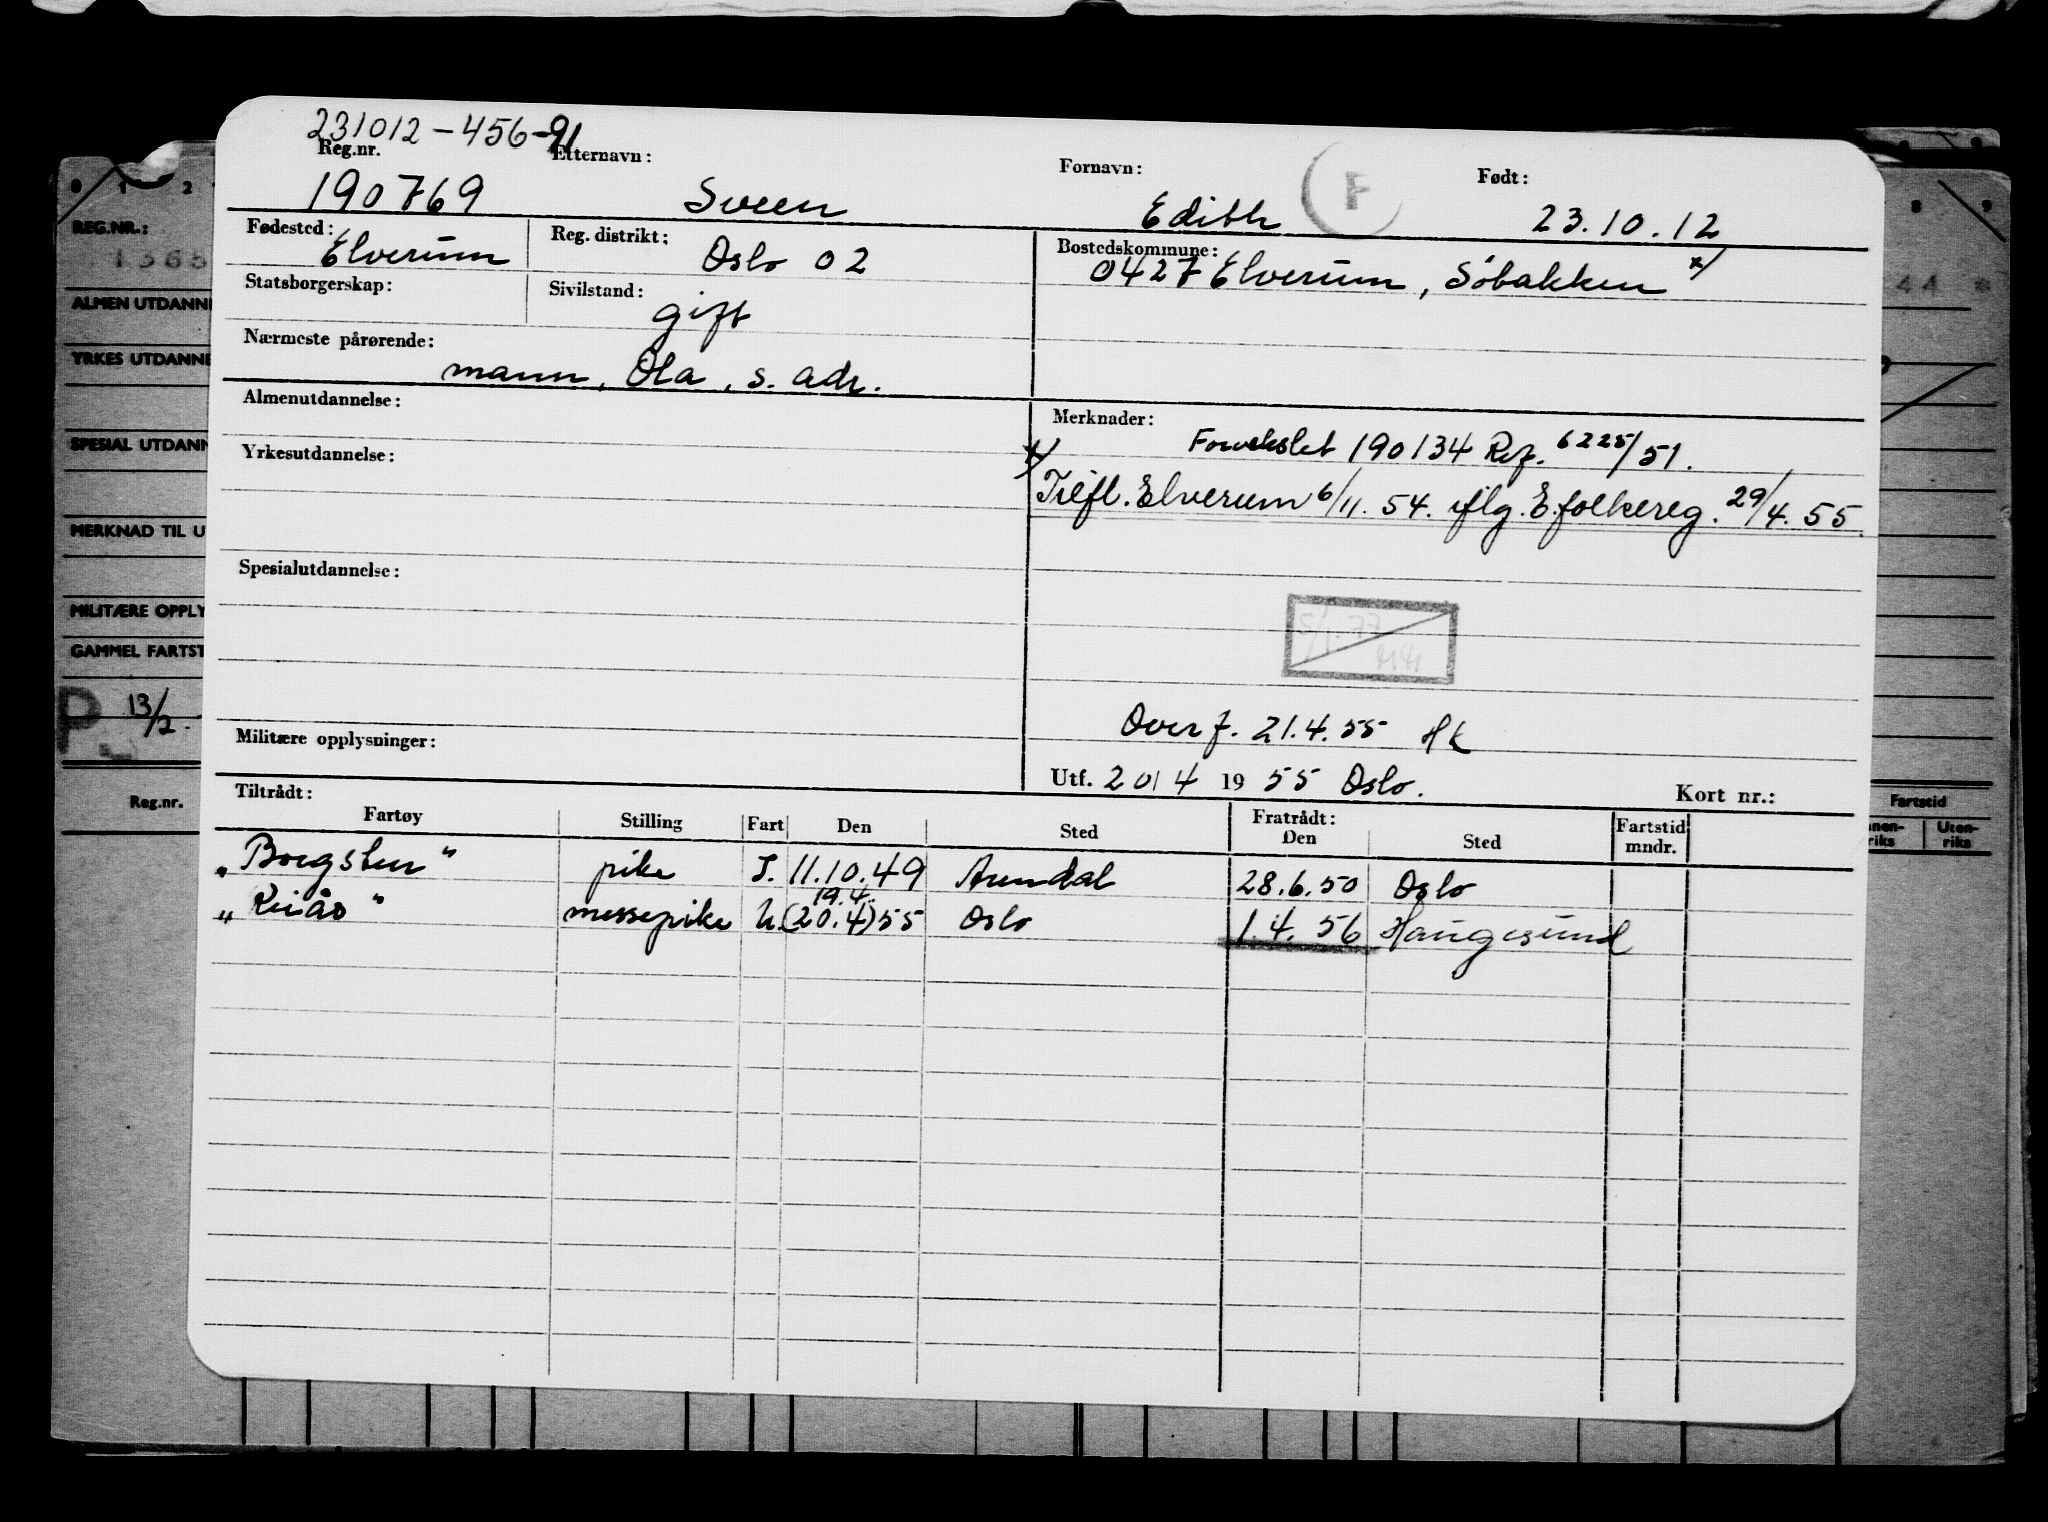 231012-456-91
Reg.nr. Etternavn: Fornavn: Født:
190769 Sveen Edith F 23.10.12
Fødested: Reg. distrikt: Bostedskommune:
Elverum Oslo 02 0427 Elverum, Søbakken x/
Statsborgerskap: Sivilstand:
gift
Nærmeste pårørende:
mann, Ola, s. adr.
Almenutdannelse: Merknader:
Forvekslet 190134 Ref. 6225/51.
Yrkesutdannelse:
x/ Tilfl. Elverum 6/11. 54. iflg. E. folkereg. 29/4. 55.
Spesialutdannelse:
5/1. 77
Overf. 21.4.55 HK
Militære opplysninger:
Utf. 20/4 19 55 Oslo. Kort nr.:
Tiltrådt: Fratrådt:
Fartøy Stilling Fart Den Sted Den Sted Fartstid mndr.
"Borgsten" pike I. 11.10.49 Arendal 28.6.50 Oslo
19.4.
messepike U. (20.4) 55 Oslo 1.4. 56 Haugesund
1 2 8 9
REG.NR.:
1365 44
ALMEN UTDANNE
YRKES UTDANNE
SPESIAL UTDANN
MERKNAD TIL U
MILITÆRE OPPLY
GAMMEL FARTST
P 13/2.
Reg.nr. Fartstid
nen-riks Uten-riks